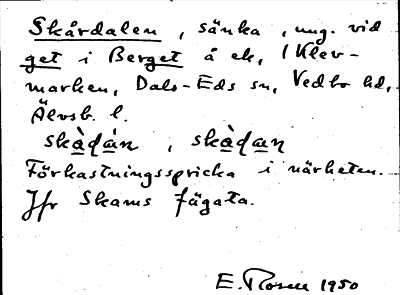 Skårdalen, sänka, ung. vid
get i Berget å ek, 1 Klev-
marken, Dals-Eds sn, Vedbo hd,
Älvsb. l.
skàdán, skàdan
Förkastningsspricka i närheten.
Jfr Skams fägata.
E. Rosell 1950